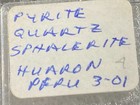 PYRITE
QUARTZ
SPHALERITE
HUARON
PERU 3-01
4